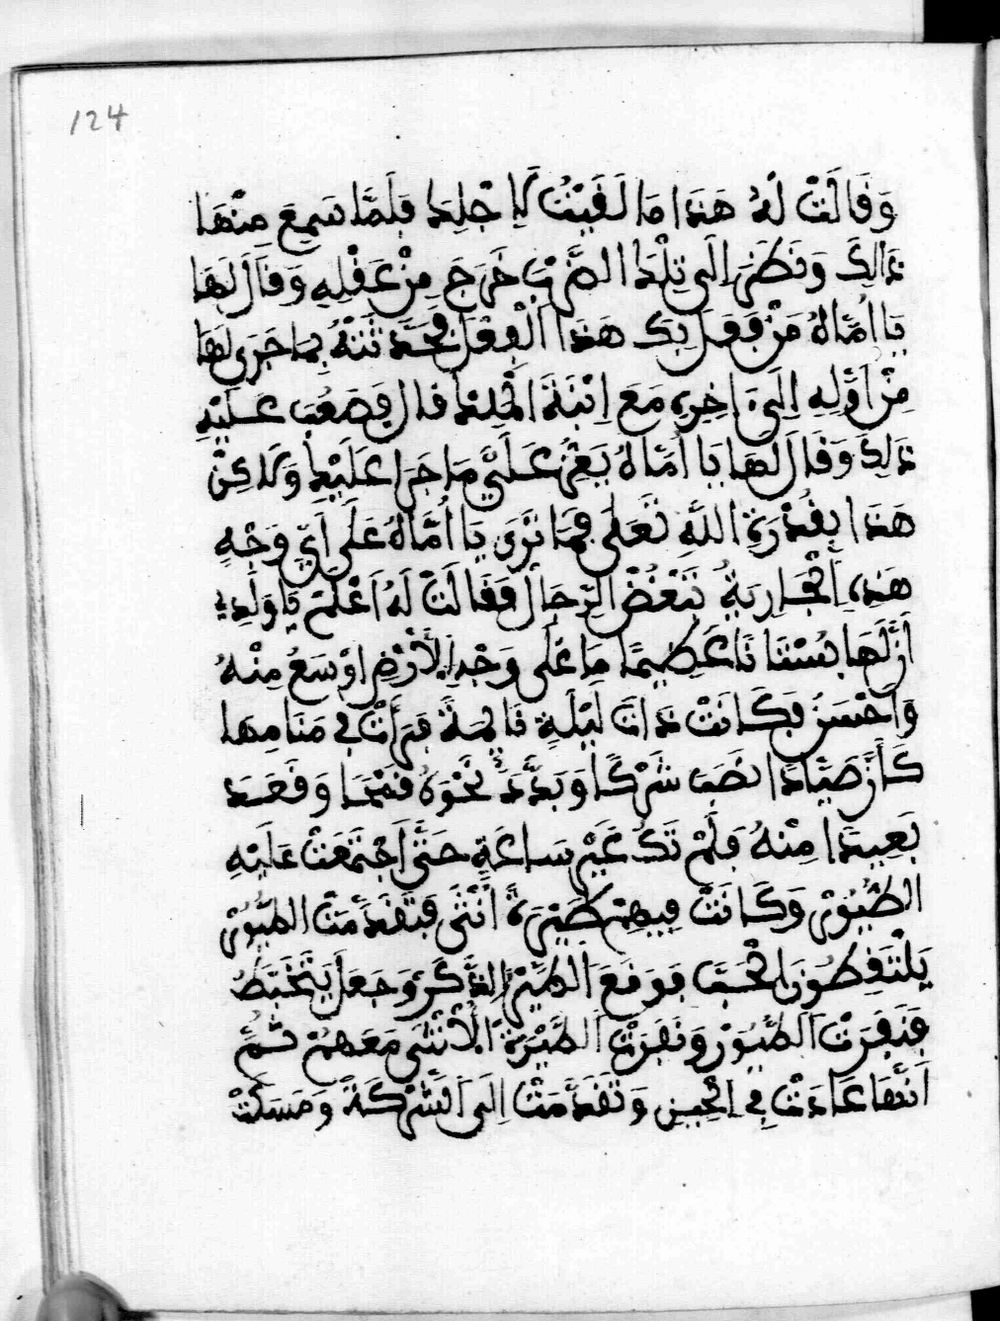 124
وَقَالَتْ لَهُ هَذَا مَا لَقَيْتُ لَاِجْلِكَ فَلَمَّا سَمِعَ مِنْهَا
ذَالِكَ وَنَظَرَ اِلَى تِلْكَ الضَّرْبِ خَرَجَ مِنْ عَقْلِهِ وَقَالَ لَهَا
يَا اُمَّاهُ مَنْ فَعَلَ بِكِ هَذَا الْفِعْلَ فَحَدَّثَتْهُ بِمَا جَرَى لَهَا
مِنْ اَوَّلِهِ اِلَىَ ءَاخِرِهِ مَعَ اِبْنَةَ الْمَلِكِ قال فَصَعُبَ عَلَيْهِ
ذَلِكَ وَقَالَ لَهَا يَا اُمَّاهُ يَعِزُّ عَلَيَّ مَا جَرَا عَلَيْكِ وَلَاكِنْ
هَذَا بِقُدْرَةِ اللَّهِ تَعَلَى فَمَا تَرَىَ يَا اُمَّاهُ عَلَى اَيِّ وَجْهٍ
هَذِهِ الْجَارِيَةُ تَبْغُضُ الرِّجَالَ فَقَالَتْ لَهُ اَعْلَمْ يَا وَلَدِي
اَنَّ لَهَا بُسْتَانًا عَظِيمًا مَا عَلَى وَجْهِ الْاَرْضِ اَوْسَعُ مِنْهُ
وَاَحْسَنُ فَكَانَتْ ذَاتَ لَيْلَةٍ نَايِمَةً فَرَأَتْ فِي مَنَامِهَا
كَأَنَّ صَيَّادًا نَصَبَ شَرْكًا وَبَدَّدَ نَحْوَهُ قَمْحًا وَقَعَدَ
بَعِيدًا مِنْهُ فَلَمْ تَكُ غَيْرَ سَاعَةٍ حَتَّى اَجْتَمَعَتْ عَلَيْهِ
الطُّيُوْرُ وَكَانَتْ فِيهِمْ طَيْرَةً اُنْثَى فَتَقَدَّمَتْ الطُّيُورُ
يَلْتَقِطُونَ الْحَبَّ فَوَقَعَ الطَّيْرُ الذَّكَرُ وَجَعَلَ يَتَخَبَّطُ
فَنَفِرَتْ اَلطُّيُوْرُ وَنَفَرَتْ اَلطَّيْرَةُ الْاُنْثَى مَعَهُمْ ثُمَّ
اَنَّهَا عَادَتْ فِي الْحِينِ وَتَقَدَّمَتْ اِلَى اَلشَّرْكَةِ وَمَسَكَتْ